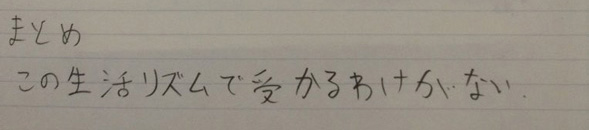 まとめ
この生活リズムで受かるわけがない.